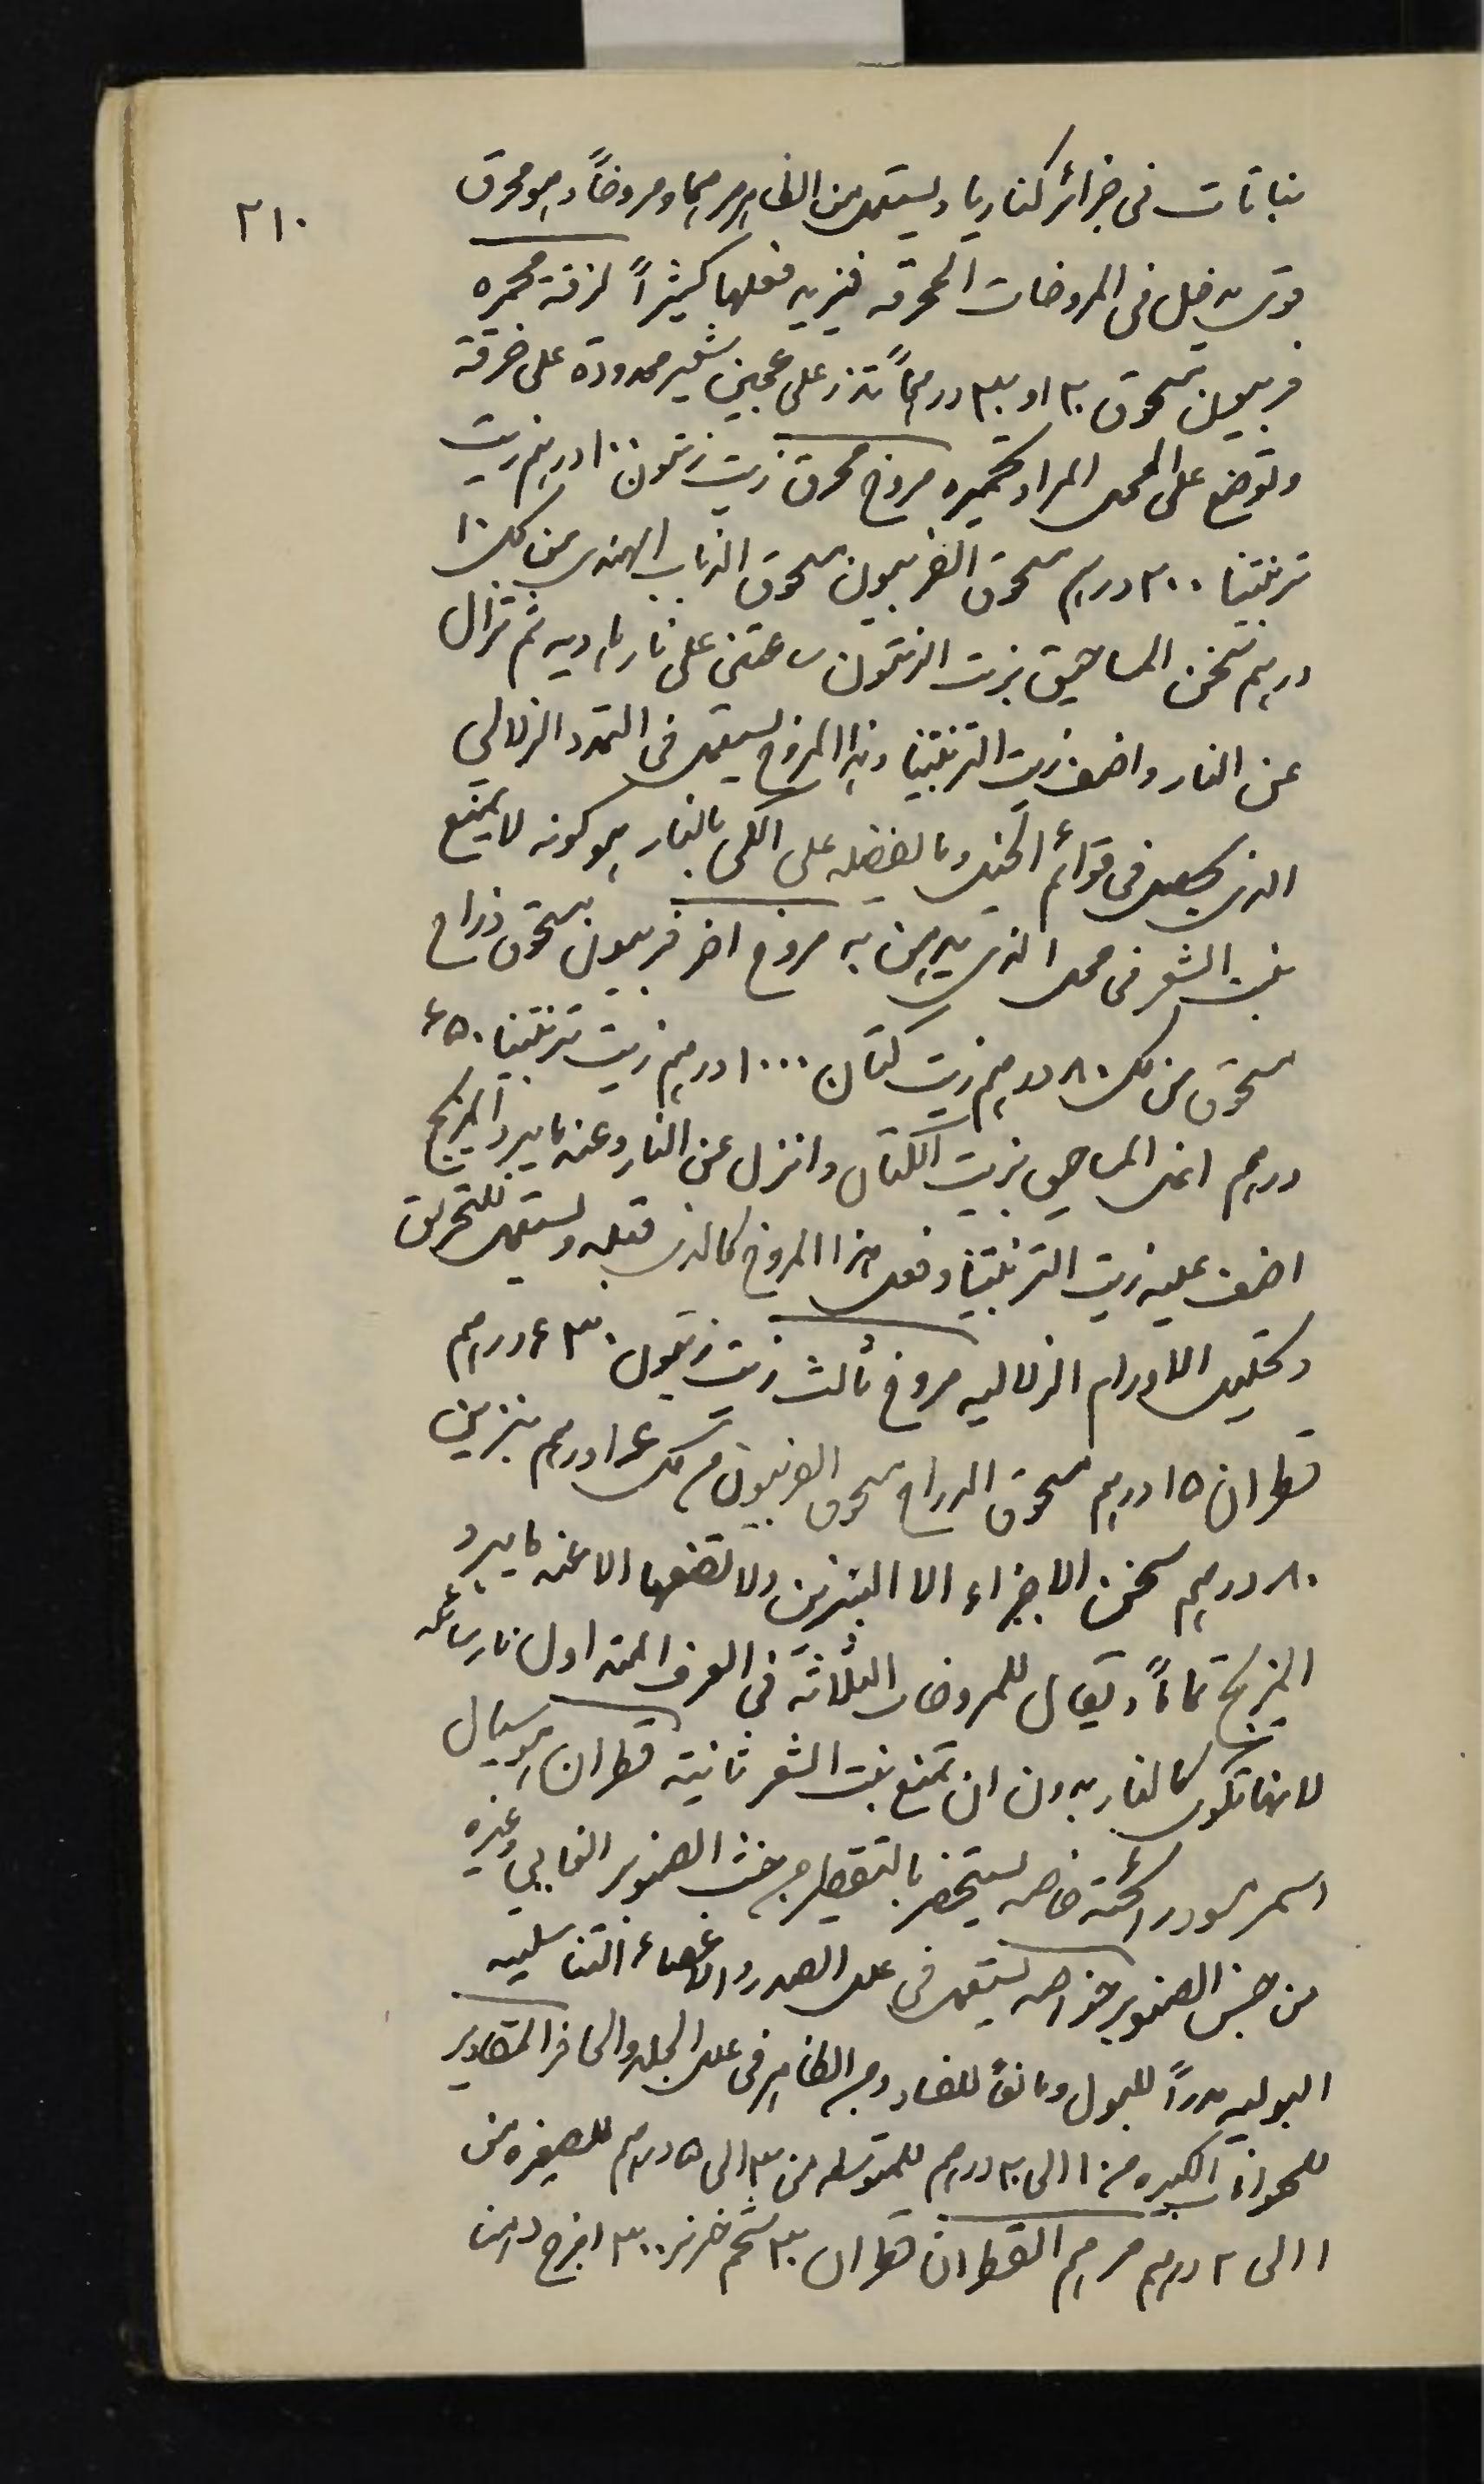 ٢١٠
نباتات فى جزائر كناريا ويستعمل من الظاهر مرهما ومروخاً وهو محرق
قوى يدخل فى المروخات المحرقه فيزيد فعلها كثيراً لزقة محمره
فربيون مسحوق ٢٠ او ٣٠ درهماً تذر على عجين شعير ممدودة على خرقة
وتوضع على المحل المراد تحميره مروخ محرق زيت زيتون ١٠٠ درهم زيت
تربنتينا ٣٠٠ درهم مسحوق الفربيون مسحوق الذباب الهندى من كل ١٠
درهم تسخن المساحيق بزيت الزيتون ساعتين على نار هاديه ثم تزال
عن النار واضف زيت التربنتينا وهذا المروخ يستعمل فى التمدد الزلالي
الذى يحصل فى قوائم الخيل وما يفضله على الكى بالنار هو كونه لا يمنع
نبت الشعر فى محل الذى يدهن به مروخ اخر فربيون مسحوق ذراح
مسحوق من كل ٨٠ درهم زيت كتان ١٠٠٠ درهم زيت تربنتينا ٤٥٠
درهم اغل المساحيق بزيت الكتان وانزل عن النار وعندما يبرد المزيج
اضف عليه زيت التربنتينا وفعل هذا المروخ كالذى قبله ويستعمل للتحريق
وتحليل الاورام الزلاليه مروخ ثالث زيت زيتون ٤٣٠ درهم
قطران ١٥ درهم مسحوق الدراح مسحوق الفربيون من كل ١٤ درهم بنزين
٨٠ درهم سخن الاجزاء الا البنزين ولا تضفها الا عندما يبرد
المزيج تماماً ويقال للمروخات الثلاثة فى العرف المتداول نار سائله
لانها تكوى كالنار بدون ان تمنع نبت الشعر ثانية قطران هو سيال
اسمر اسود رائحته خاصه يستحضر بالتقطير من خشب الصنوبر الغابي وغيره
من جنس الصنوبر خواصه يستعمل فى علل الصدر والاعضاء التناسليه
البوليه مدراً للبول ومانعاً للفساد ومن الظاهر فى علل الجلد والحافر المقادير
للحيوانات الكبيره من ١٠ الى ٢٠ درهم للمتوسطه من ٣ الى ٥ درهم للصغيره من
١ الى ٢ درهم مرهم القطران قطران ٣٠ شحم خنزير ٣٠٠ امزج وادهن